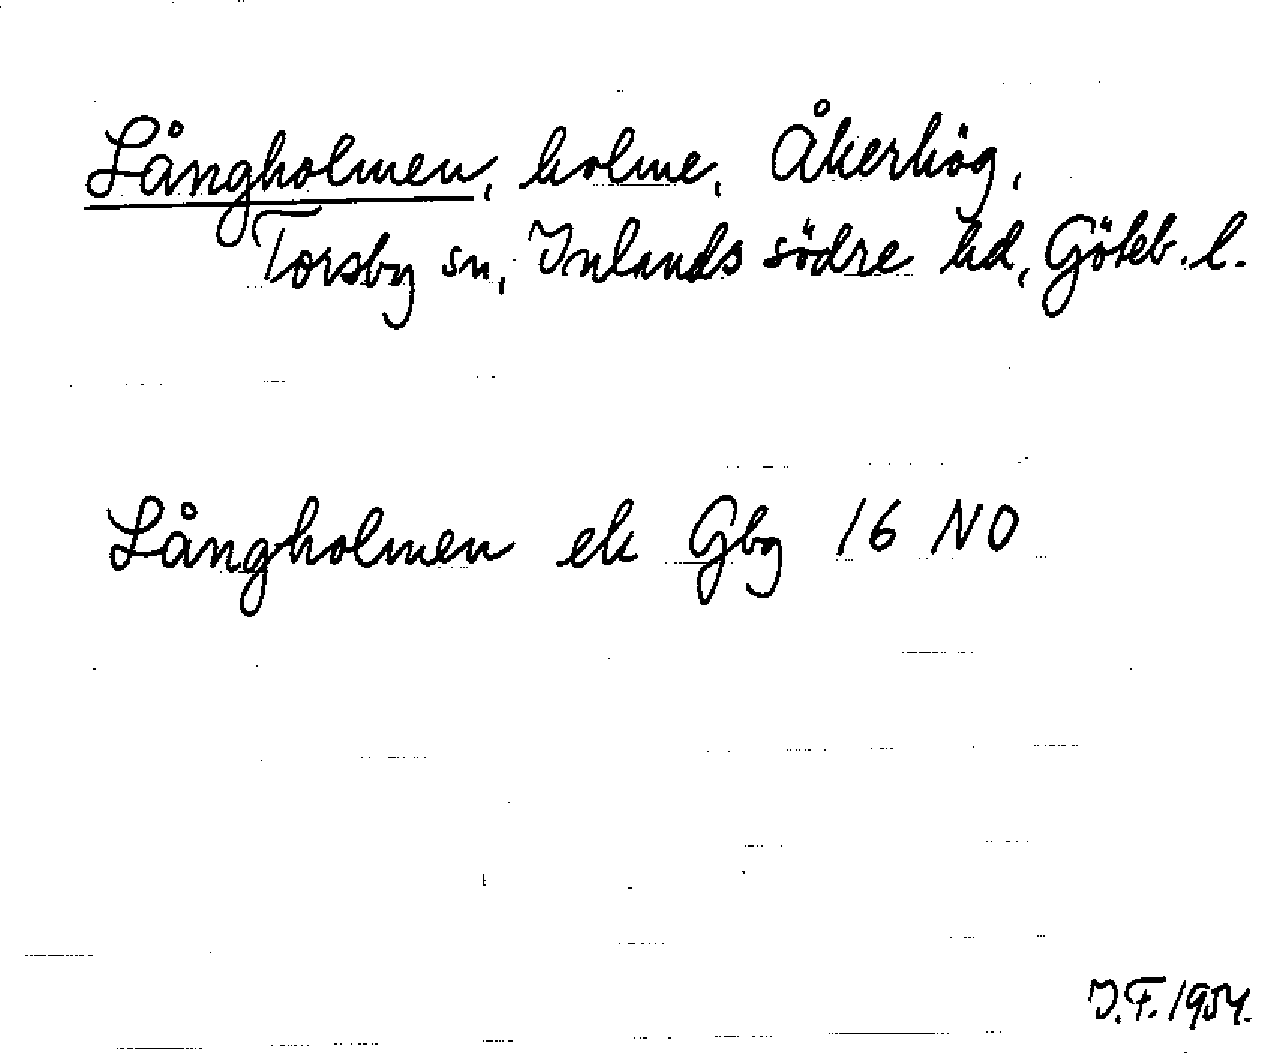 Långholmen, holme, Åkerhög,
Torsby sn, Inlands södre hd, Göteb. l.
Långholmen ek Gbg 16 NO
I.F. 1954.